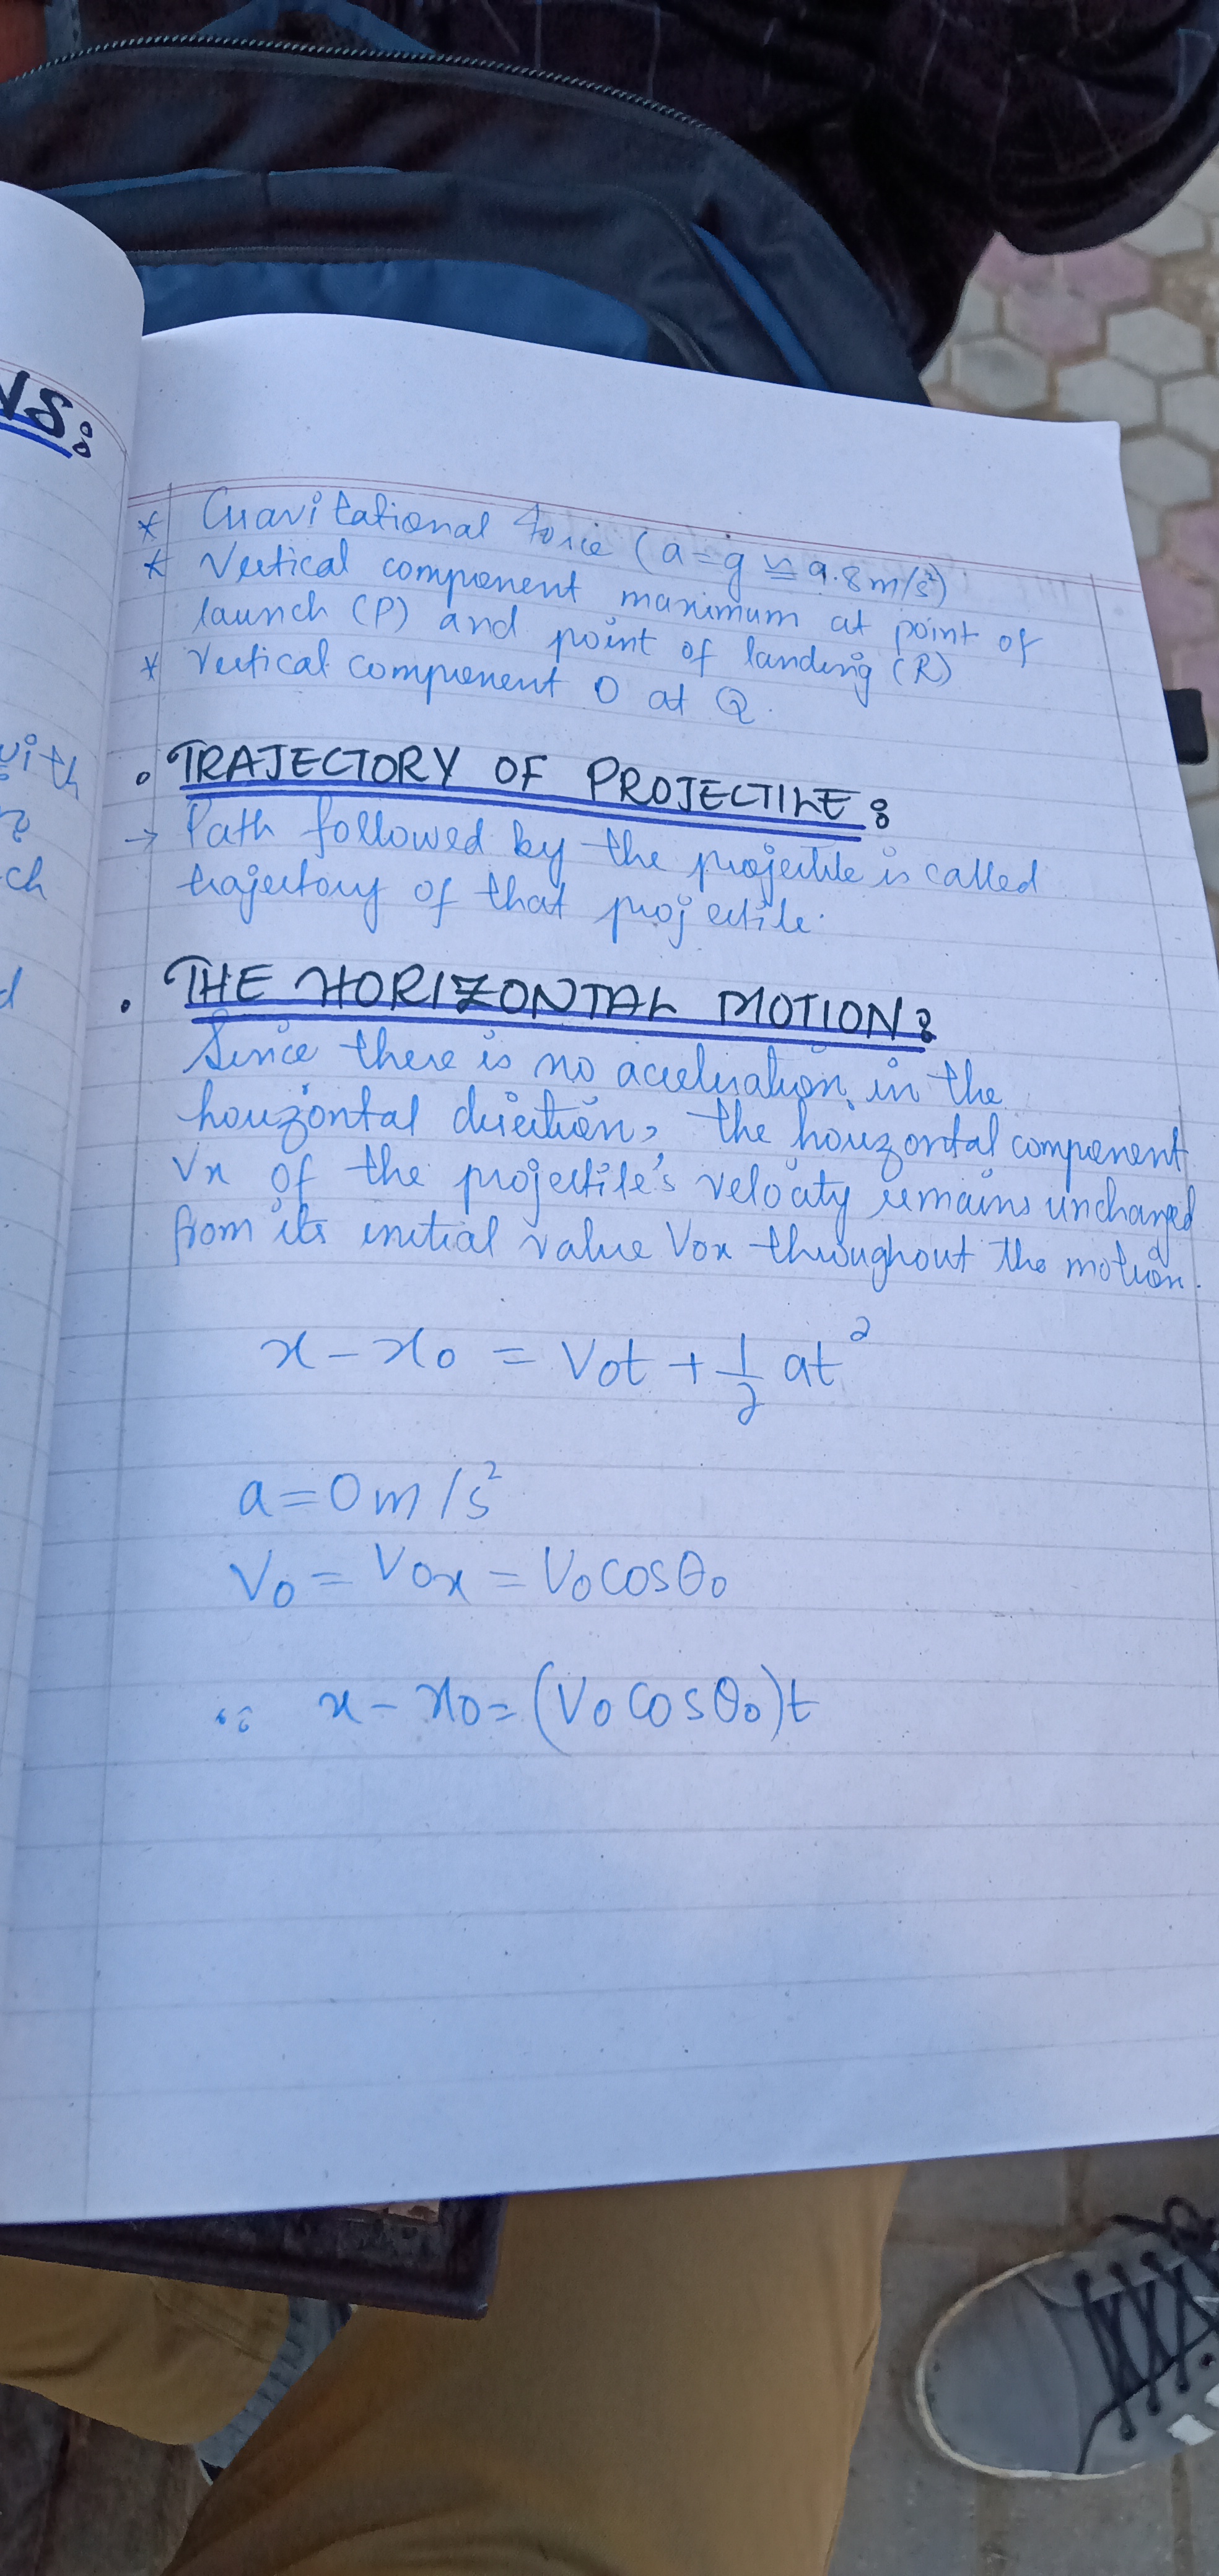 NS:
* Gravitational force (a=g ≌ 9.8m/s²)
* Vertical component maximum at point of
launch (P) and point of landing (R)
* Vertical component 0 at Q.
with
. TRAJECTORY OF PROJECTILE:
→ Path followed by the projectile is called
ch
trajectory of that projectile.
d
. THE HORIZONTAL MOTION:
Since there is no acceleration in the
horizontal direction, the horizontal component
Vx of the projectile's velocity remains unchanged
from its initial value Vox throughout the motion.
x - x0 = Vot + 1/2 at²
a = 0 m/s²
Vo = Vox = Vo cosθo
∴ x - x0 = (Vo cosθo)t